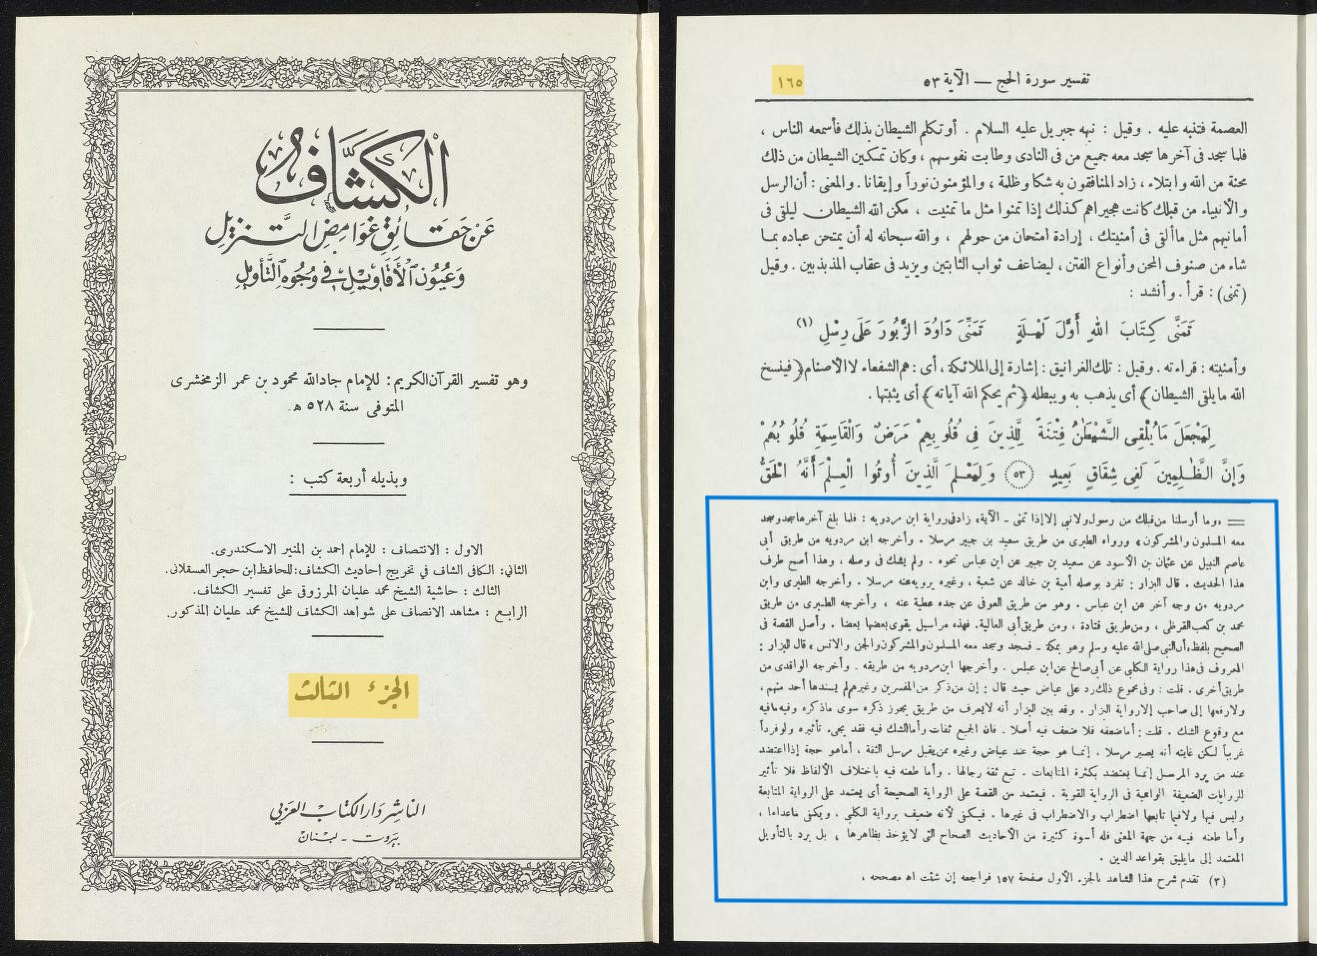 الكشاف
عن حقائق غوامض التنزيل
وعيون الأقاويل في وجوه التأويل
وهو تفسير القرآن الكريم: للإمام جادالله محمود بن عمر الزمخشرى
المتوفى سنة ٥٢٨ هـ.
وبذيله أربعة كتب :
الاول : الانتصاف : للإمام احمد بن المنير الاسكندرى.
الثانى: الكافى الشاف في تخريج احاديث الكشاف: للحافظ ابن حجر العسقلانى.
الثالث : حاشية الشيخ محمد عليان المرزوقى على تفسير الكشاف.
الرابع : مشاهد الانصاف على شواهد الكشاف للشيخ محمد عليان المذكور.
الجزء الثالث
الناشر دار الكتاب العربي
بيروت - لبنان
تفسير سورة الحج — الآية ٥٣
١٦٥
العصمة فتنبه عليه . وقيل : نبهه جبريل عليه السلام . أو تكلم الشيطان بذلك فأسمعه الناس ،
فلما سجد فى آخرها سجد معه جميع من فى النادى وطابت نفوسهم ، وكان تمكين الشيطان من ذلك
محنة من الله وابتلاء ، زاد المنافقون به شكا وظلمة ، والمؤمنون نوراً وإيقانا . والمعنى : أن الرسل
والأنبياء من قبلك كانت هجيراهم كذلك إذا تمنوا مثل ما تمنيت ، مكن الله الشيطان ليلقى فى
أمانيهم مثل ما ألقى فى أمنيتك ، إرادة امتحان من حولهم ، والله سبحانه له أن يمتحن عباده بما
شاء من صنوف المحن وأنواع الفتن ، ليضاعف ثواب الثابتين ويزيد فى عقاب المذبذبين . وقيل
(تمنى) : قرأ . وأنشد :
تَمَنَّى كِتَابَ اللهِ أَوَّلَ لَيْلَةٍ تَمَنِّىَ دَاوُدَ الزَّبُورَ عَلَى رِسْلِ (١)
وأمنيته : قراءته . وقيل : تلك الغرانيق : إشارة إلى الملائكة ، أى : هم الشفعاء لا الأصنام ﴿فينسخ
الله ما يلقى الشيطان﴾ أى يذهب به ويبطله ﴿ثم يحكم الله آياته﴾ أى يثبتها .
لِيَجْعَلَ مَا يُلْقِى الشَّيْطَانُ فِتْنَةً لِّلَّذِينَ فِى قُلُوبِهِمْ مَرَضٌ وَالْقَاسِيَةِ قُلُوبُهُمْ
وَإِنَّ الظَّالِمِينَ لَفِى شِقَاقٍ بَعِيدٍ (٥٣) وَلِيَعْلَمَ الَّذِينَ أُوتُوا الْعِلْمَ أَنَّهُ الْحَقُّ
= «وما أرسلنا من قبلك من رسول ولا نبى إلا إذا تمنى - الآية» زاد فى رواية ابن مردويه : فلما بلغ آخرها سجد وسجد
معه المسلمون والمشركون» ورواه الطبرى من طريق سعيد بن جبير مرسلا . وأخرجه ابن مردويه من طريق أبى
عاصم النبيل عن عثمان بن الأسود عن سعيد بن جبير عن ابن عباس نحوه . ولم يشك فى وصله ، وهذا أصح طرف
هذا الحديث . قال البزار : تفرد بوصله أمية بن خالد عن شعبة ، وغيره يرويه عنه مرسلا . وأخرجه الطبرى وابن
مردويه من وجه آخر عن ابن عباس . وهو من طريق العوفى عن جده عطية عنه ، وأخرجه الطبرى من طريق
محمد بن كعب القرظى ، ومن طريق قتادة ، ومن طريق أبى العالية. فهذه مراسيل يقوى بعضها بعضا . وأصل القصة فى
الصحيح بلفظ «أن النبى صلى الله عليه وسلم وهو بمكة - فسجد وسجد معه المسلمون والمشركون والجن والانس ، قال البزار :
المعروف فى هذا رواية الكلبى عن أبى صالح عن ابن عباس . وأخرجها ابن مردويه من طريقه . وأخرجه الواقدى من
طريق أخرى . قلت : وفى مجموع ذلك رد على عياض حيث قال : إن من ذكر من المفسرين وغيرهم لم يسندها أحد منهم ،
ولا رفعها إلى صاحب إلا رواية البزار . وقد بين البزار أنه لا يعرف من طريق يجوز ذكره سوى ما ذكره وفيه مافيه
مع وقوع الشك . قلت : أما ضعفه فلا ضعف فيه أصلا . فان الجميع ثقات وأما الشك فيه فقد يجىء تأثيره ولو فرداً
غريباً لكن غايته أنه يصير مرسلا . إنما هو حجة عند عياض وغيره ممن يقبل مرسل الثقة ، أما هو حجة إذا اعتضد
عند من يرد المرسل إنما يعتضد بكثرة المتابعات . تبع ثقة رجالها . وأما طعنه فيه باختلاف الألفاظ فلا تأثير
للروايات الضعيفة الواهية فى الرواية القوية . فيعتمد من القصة على الرواية الصحيحة أى يعتمد على الرواية المتابعة
وليس فيها ولا فيما تابعها اضطراب والاضطراب فى غيرها . فيكفى لأنه ضعيف برواية الكلبى ، ويكفى ماعداما ،
وأما طعنه فيه من جهة المعنى فله أسوة كثيرة من الأحاديث الصحاح التى لا يؤخذ بظاهرها ، بل يرد بالتأويل
المعتمد إلى مايليق بقواعد الدين .
(٣) تقدم شرح هذا الشاهد بالجزء الأول صفحة ١٥٧ فراجعه إن شئت اه مصححه .